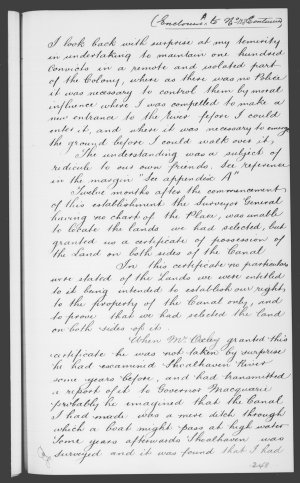 (Enclosure A to
I look back with surprise at my temerity
in undertaking to maintain one hundred
Convicts in a remote and isolated part
of the Colony, where as there was no Police
it was necessary to control them by moral
influence where I was compelled to make a
new entrance to the river before I could
enter it, and where it was necessary to
the ground before I could walk over it,
The undertaking was a subject of
ridicule to our own friends. See reference
in the margin "See appendix A"
Twelve months after the commencement
of this establishment the Surveyor General
having no chart of the Place, was unable
to locate the lands we had selected, but
granted us a certificate of possession of
the Land on both sides of the Canal
In this certificate no particulars
were stated of the Lands we were entitled
to it being intended to establish our right
to the property of the Canal only, and
to prove that we had selected the land
on both sides of it.
When Mr Oxley granted this
certificate he was not taken by surprise
he had examined Shoalhaven River
some years before, and had transmitted
a report of it to Governor Macquarie
probably he imagined that the Canal
I had made was a mere ditch through
which a boat might pass at high water
Some years afterwards Shoalhaven was
surveyed and it was found that I had
248